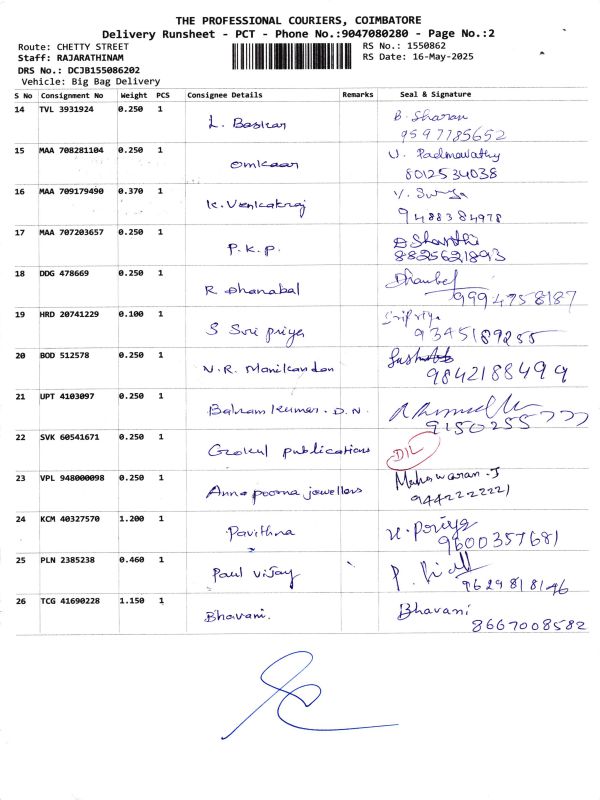 THE PROFESSIONAL COURIERS, COIMBATORE
Delivery Runsheet - PCT - Phone No.:9047080280 - Page No.:2
Route: CHETTY STREET RS No.: 1550862
Staff: RAJARATHINAM RS Date: 16-May-2025
DRS No.: DCJB155086202
Vehicle: Big Bag Delivery
S No Consignment No Weight PCS Consignee Details Remarks Seal & Signature
14 TVL 3931924 0.250 1 L. Baskar B. Sharan
9597785652
15 MAA 708281104 0.250 1 Omkaar U. Padmavathy
8012534038
16 MAA 709179490 0.370 1 K. Venkatraj V. Surya
9488384978
17 MAA 707203657 0.250 1 P.K.P. Sharthi
8825621893
18 DDG 478669 0.250 1 R Dhanabal
9994758187
19 HRD 20741229 0.100 1 S Sri priya Sripriya
9345189255
20 BOD 512578 0.250 1 N.R. Manikandan
9842188499
21 UPT 4103097 0.250 1 Balram kumar. D.N.
9150255777
22 SVK 60541671 0.250 1 Gokul publications DIL
23 VPL 948000098 0.250 1 Annapoorna jewellers Maheswaran.J
9442222221
24 KCM 40327570 1.200 1 Pavithra K. Priya
9600357681
25 PLN 2385238 0.460 1 Paul vijay
9629818146
26 TCG 41690228 1.150 1 Bhavani. Bhavani
8667008582